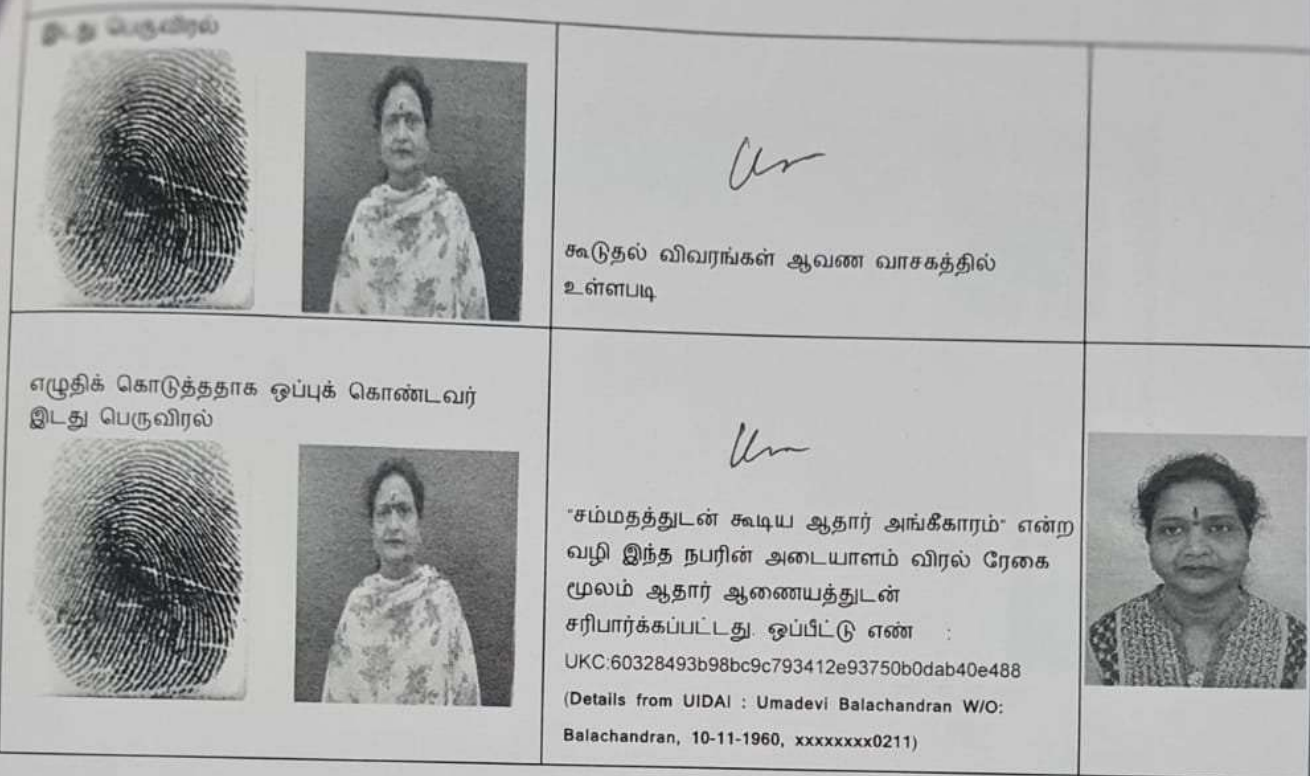 இடது பெருவிரல்
கூடுதல் விவரங்கள் ஆவண வாசகத்தில்
உள்ளபடி
எழுதிக் கொடுத்ததாக ஒப்புக் கொண்டவர்
இடது பெருவிரல்
"சம்மதத்துடன் கூடிய ஆதார் அங்கீகாரம்" என்ற
வழி இந்த நபரின் அடையாளம் விரல் ரேகை
மூலம் ஆதார் ஆணையத்துடன்
சரிபார்க்கப்பட்டது. ஒப்பீட்டு எண் :
UKC:60328493b98bc9c793412e93750b0dab40e488
(Details from UIDAI : Umadevi Balachandran W/O:
Balachandran, 10-11-1960, xxxxxxxx0211)